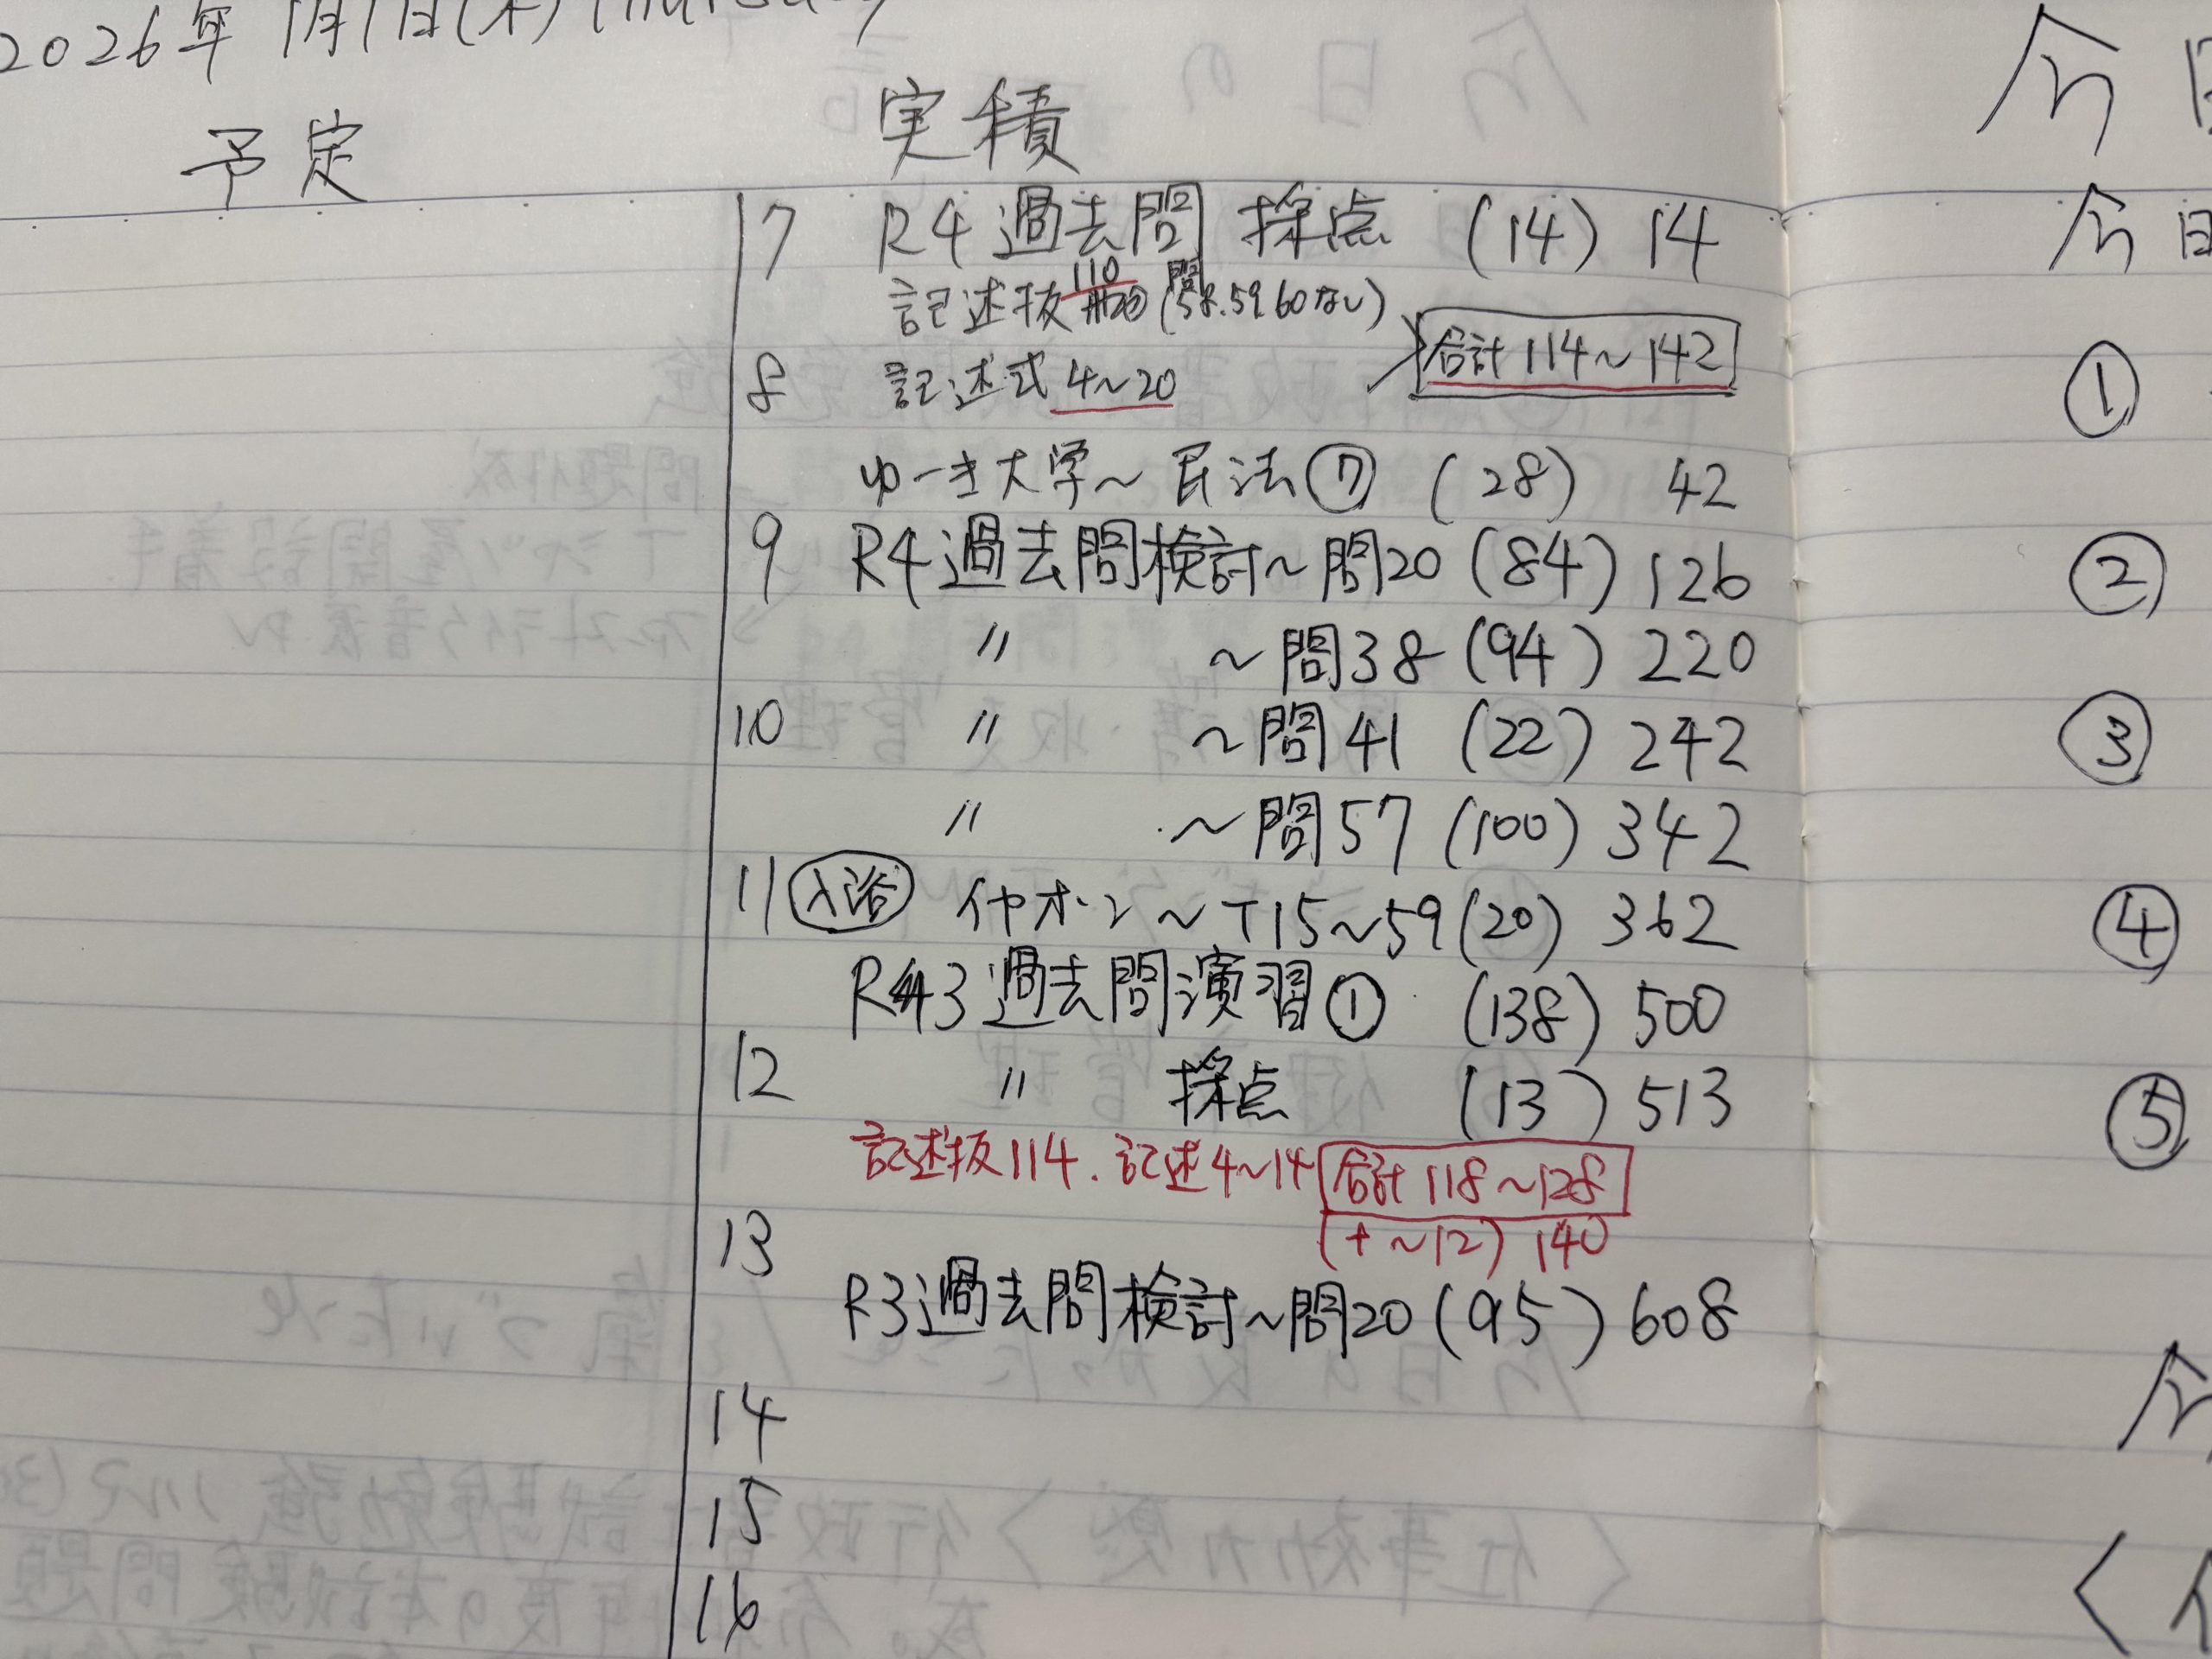 2026年 1月1日(木) Thursday
予定
実積
7 R4 過去問 採点 (14) 14
110
記述抜 (問58.59.60ない)
合計 114～142
8 記述式 4～20
ゆーき大学～民法⑦ (28) 42
9 R4過去問検討～問20 (84) 126
〃 ～問38 (94) 220
10 〃 ～問41 (22) 242
〃 ～問57 (100) 342
11 入浴 イヤホン～T15～59 (20) 362
R3 過去問演習① (138) 500
12 〃 採点 (13) 513
記述抜114. 記述4～14 合計 118～128
(+～12) 140
13
R3過去問検討～問20 (95) 608
14
15
16
今日
①
②
③
④
⑤